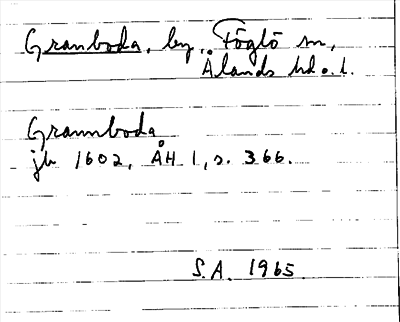 Granboda, by, Föglö sn,
Ålands hd o. l.
Grannboda
jb 1602, ÅH 1, s. 366.
S.A. 1965